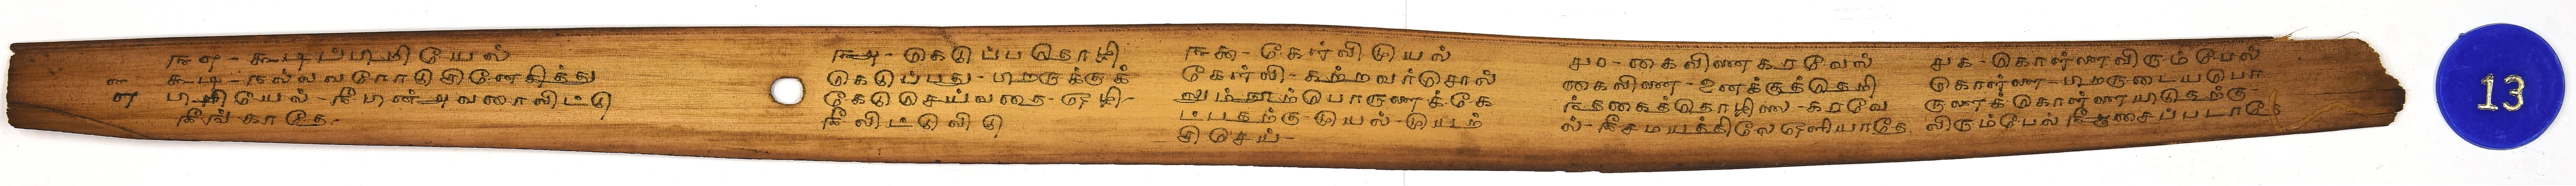 ௩௭ - கூடிப்பிறியேல்
கூடி - நல்லவரோடு இணங்கித்து
பிறியேல் - நீ பின் அவரைவிட்டு
நீங்காதே.
௩௮ - கெடுப்பதொழி
கெடுப்பது - பிறருக்குக்
கேடுசெய்வதை - ஒழி -
நீ விட்டுவிடு
௩௯ - கேள்விமுயல்
கேள்வி - கற்றவர்சொல்
லும்நூற்பொருளைக்கே
ட்பதற்கு - முயல் - முயற்
சிசெய் -
௪௦ - கைவினைகரவேல்
கைவினை - உனக்குத்தெரி
ந்தகைத்தொழிலை - கரவே
ல் - நீசமயத்திலேஒளியாதே
௪௧ - கொள்ளைவிரும்பேல்
கொள்ளை - பிறருடையபொ
ருளைக்கொள்ளையிடுதற்கு -
விரும்பேல் நீஆசைப்படாதே
13